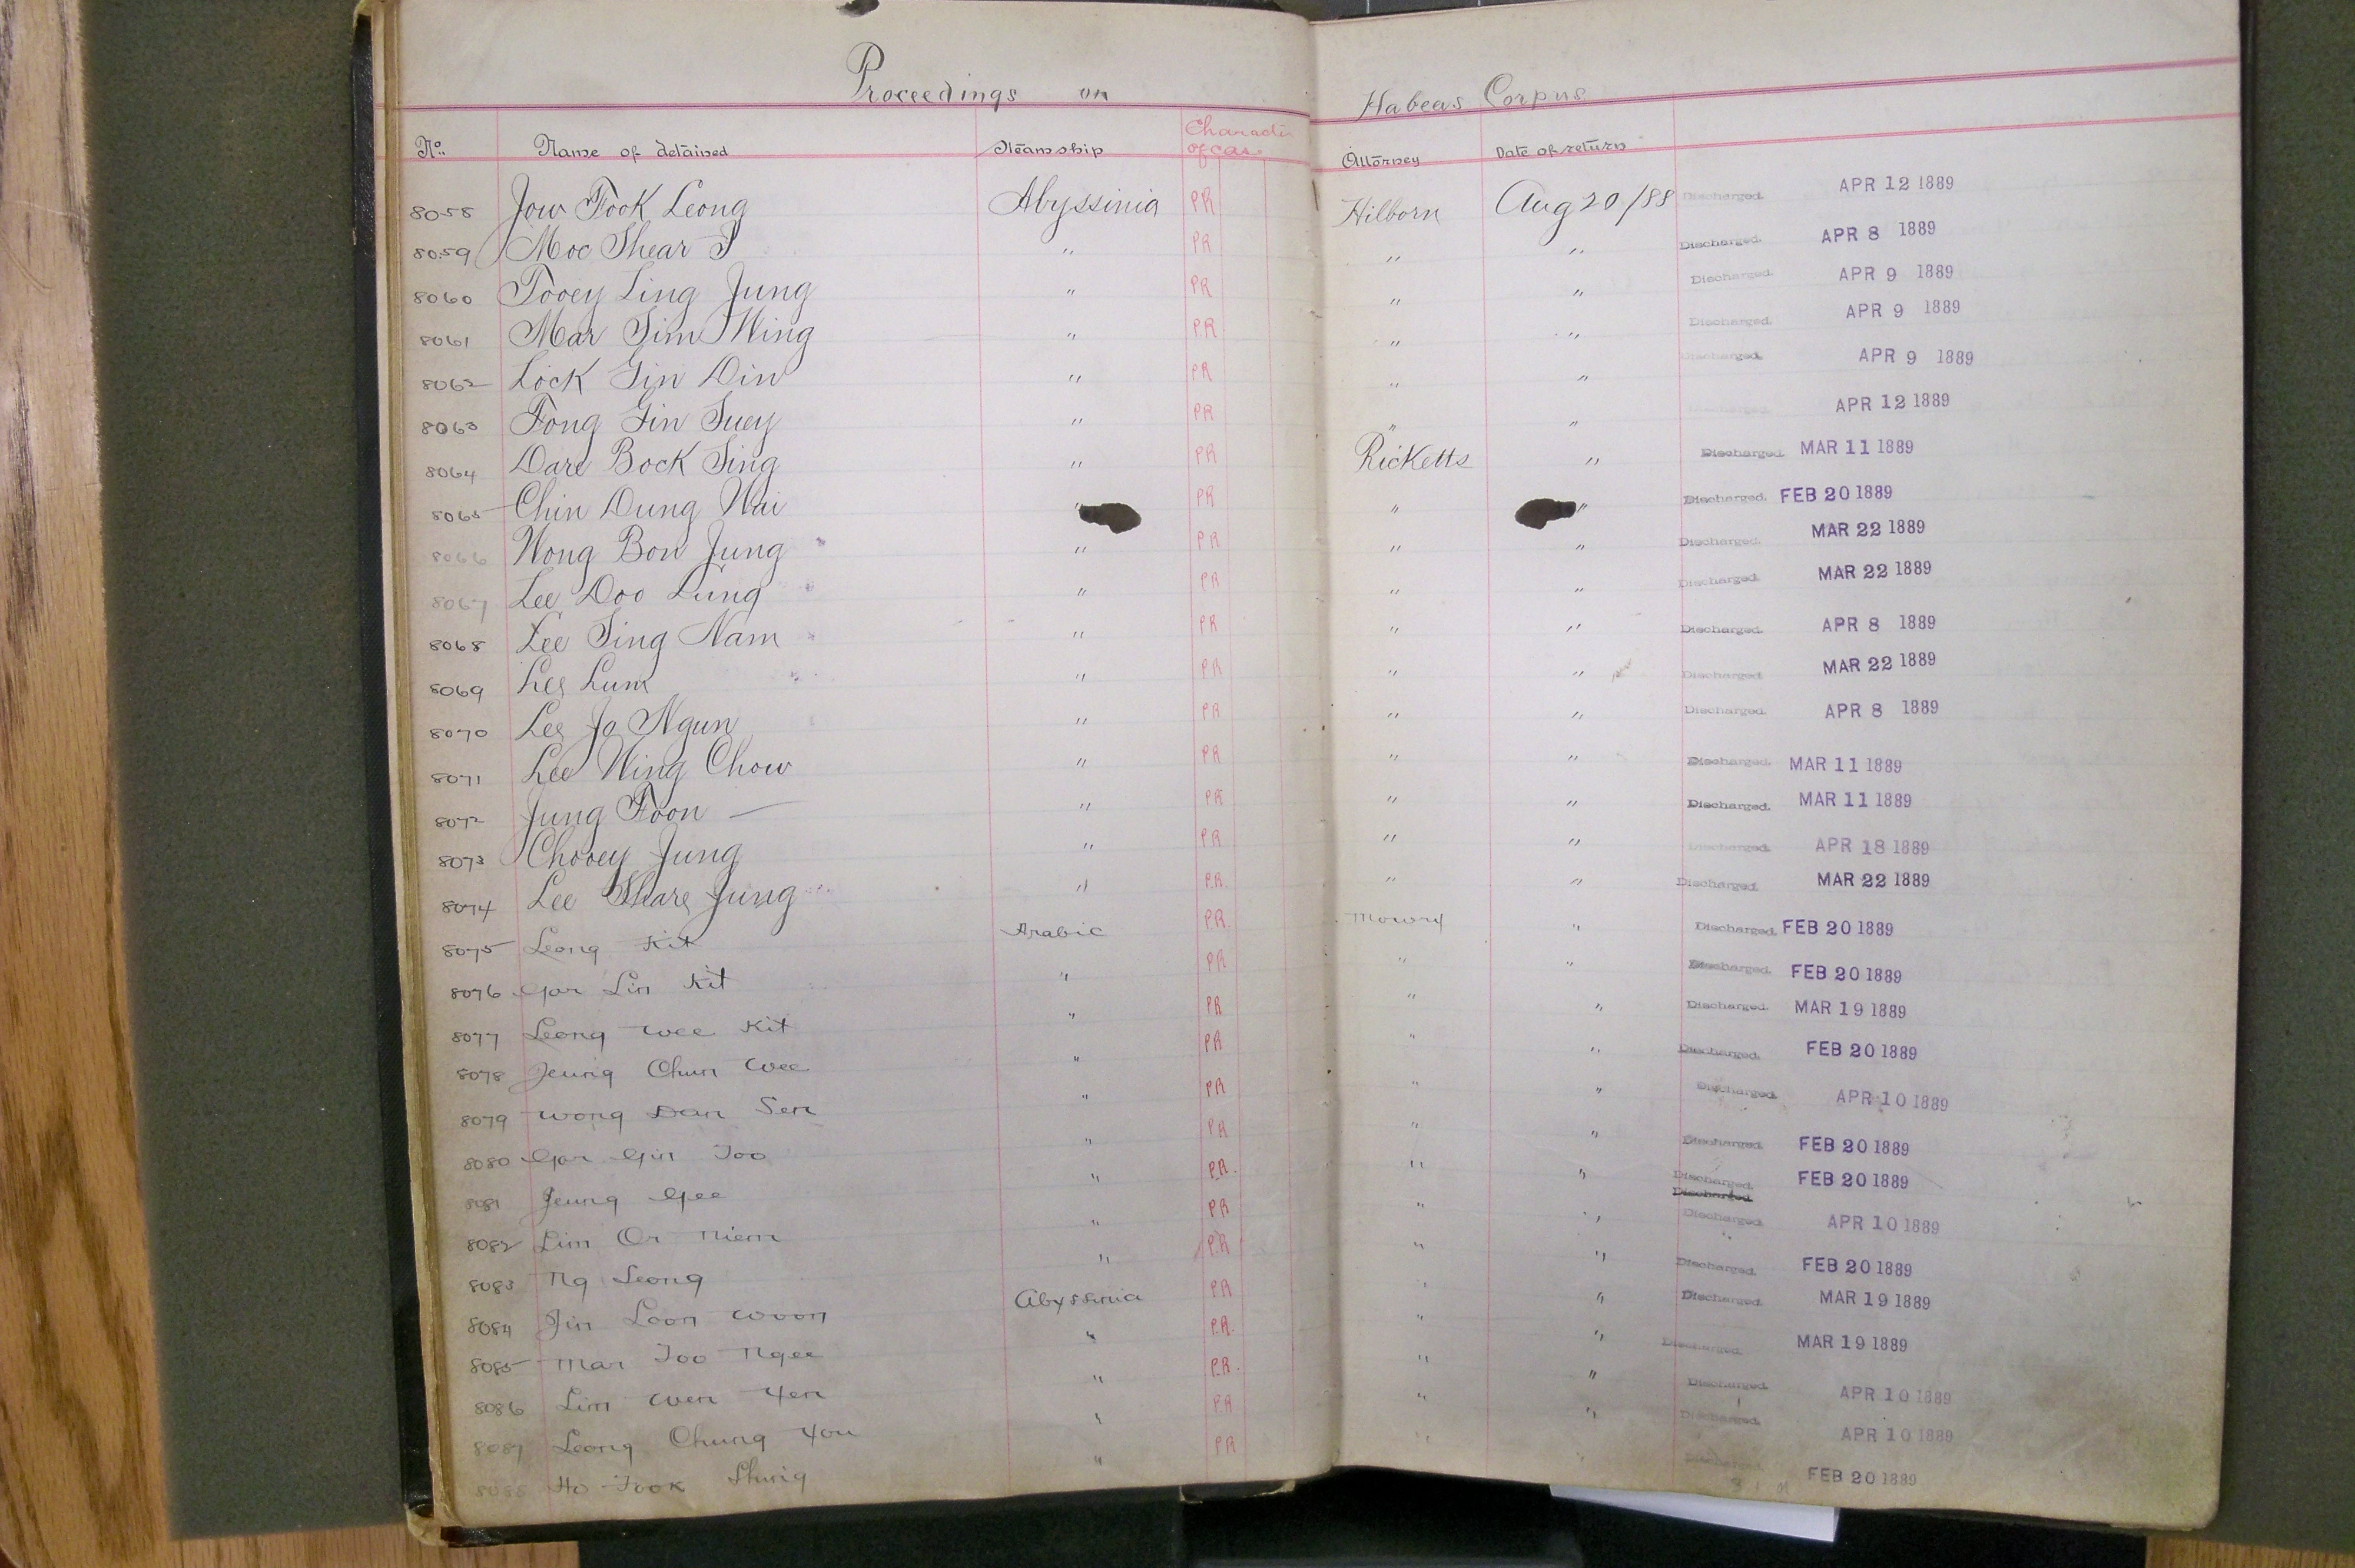 Proceedings on Habeas Corpus
No. Name of detained Steamship Character of case Attorney Date of return
8058 Jow Fook Leong Abyssinia PR Hilborn Aug 20/88 Discharged. APR 12 1889
8059 Moc Shear I " PR " " Discharged. APR 8 1889
8060 Tooey Ling Jung " PR " " Discharged. APR 9 1889
8061 Mar Sim Wing " P.R " " Discharged. APR 9 1889
8062 Lock Gin Din " PR " " Discharged. APR 9 1889
8063 Fong Gin Suey " PR " " APR 12 1889
8064 Dare Bock Sing " PR Ricketts " Discharged. MAR 11 1889
8065 Chin Dung Wai " PR " " Discharged. FEB 20 1889
8066 Wong Bon Jung " PR " " Discharged. MAR 22 1889
8067 Lee Doo Lung " PR " " Discharged. MAR 22 1889
8068 Lee Sing Nam " PR " " Discharged. APR 8 1889
8069 Lee Lum " PR " " Discharged. MAR 22 1889
8070 Lee Jo Ngun " PR " " Discharged. APR 8 1889
8071 Lee Wing Chow " PR " " Discharged. MAR 11 1889
8072 Jung Foon — " PR " " Discharged. MAR 11 1889
8073 Chooey Jung " P.R " " Discharged. APR 18 1889
8074 Lee Share Jung " P.R. " " Discharged. MAR 22 1889
8075 Leong Kit Arabic P.R. Mowry " Discharged. FEB 20 1889
8076 Gar Lin Kit " PR " " Discharged. FEB 20 1889
8077 Leong Wee Kit " PR " " Discharged. MAR 19 1889
8078 Jeung Chun Wee " PR " " Discharged. FEB 20 1889
8079 Wong Dan Sen " PR " " Discharged. APR 10 1889
8080 Gar Gin Too " PR " " Discharged. FEB 20 1889
8081 Jeung Gee " P.R. " " Discharged. Discharged FEB 20 1889
8082 Lim Or Niem " PR " " Discharged. APR 10 1889
8083 Ng Leong " P.R " " Discharged. FEB 20 1889
8084 Jin Loon Woon Abyssinia PR " " Discharged. MAR 19 1889
8085 Mar Too Ngee " P.R. " " Discharged. MAR 19 1889
8086 Lim Wen Yen " P.R. " " Discharged. APR 10 1889
8087 Leong Chung You " PR " " Discharged. APR 10 1889
8088 Ho Fook Shung " PR " " Discharged. FEB 20 1889